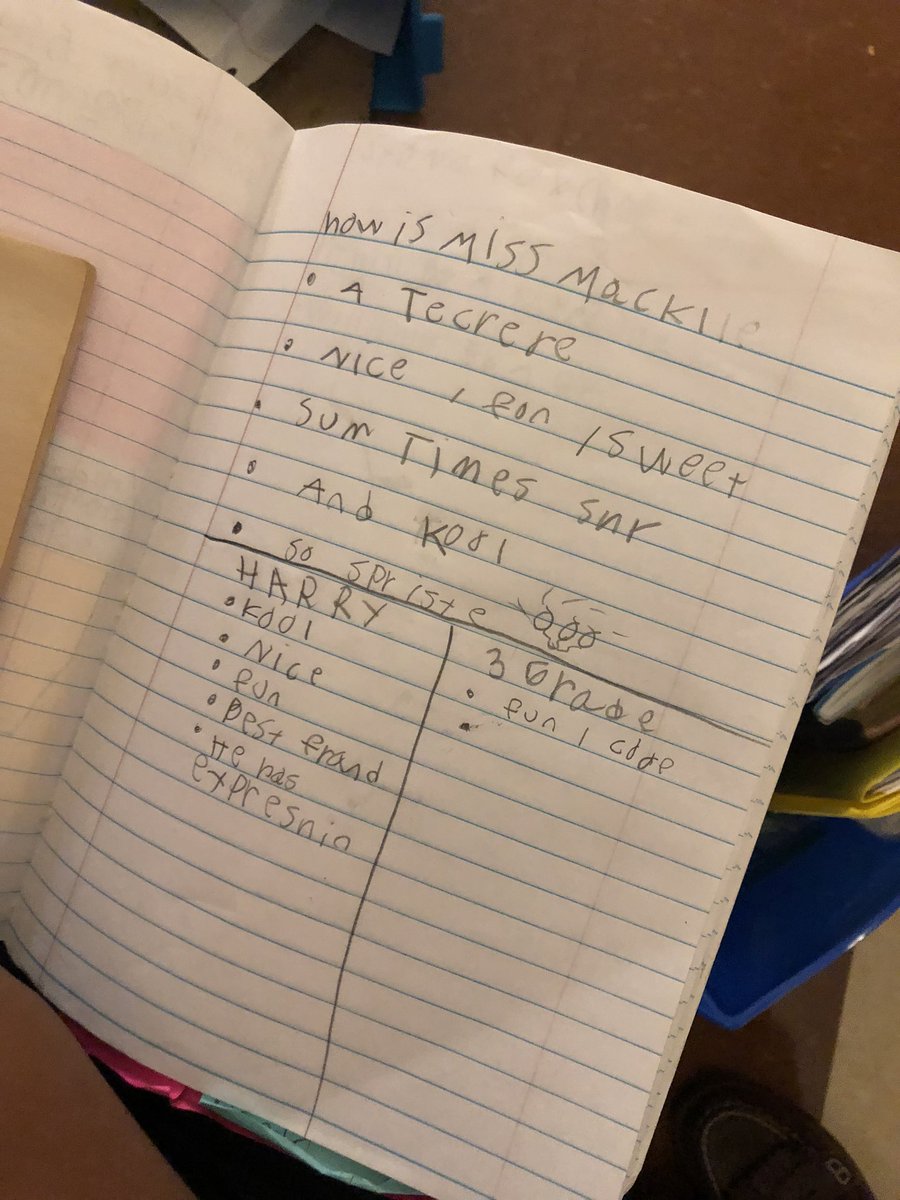 how is Miss Mackie
• A Tecrere
• Nice , fon , sweet
• Sum Times snr
• And Kool
• so spriste
HARRY
• Kool
• Nice
• fun
• Best frand
• He has
expresnin
3 Grade
• fun , cdoe
•